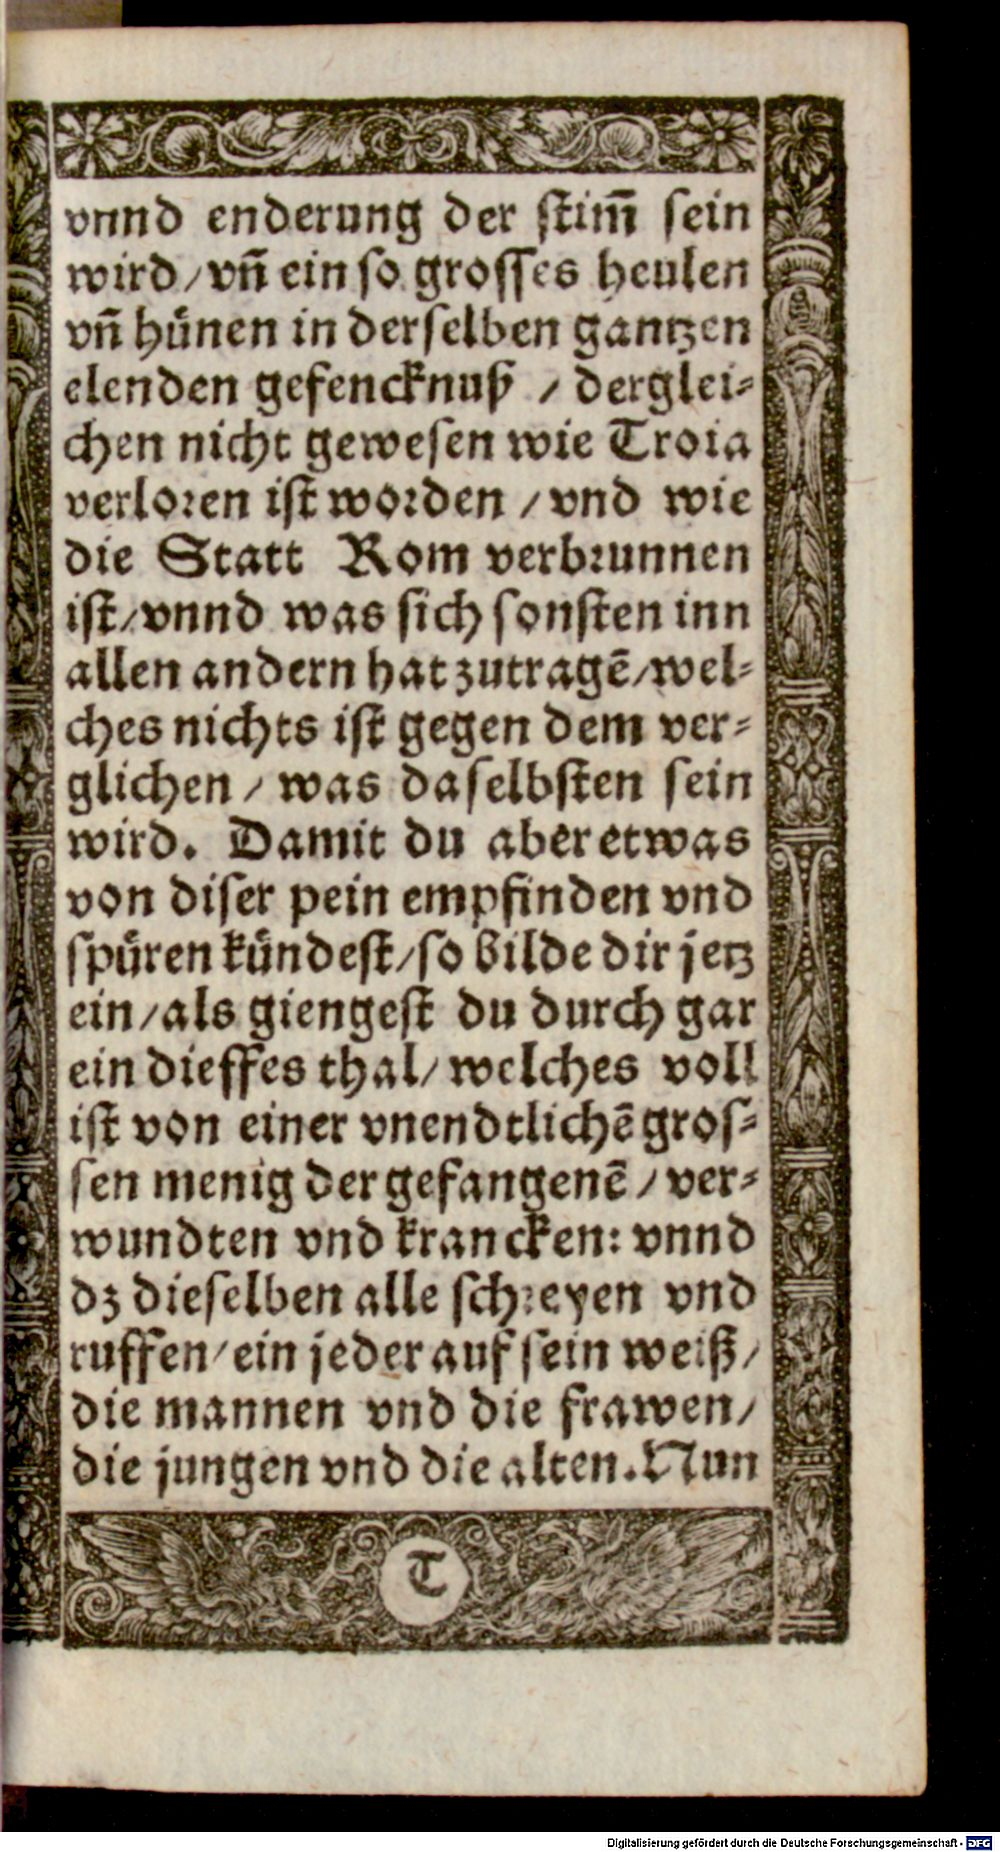 vnnd enderung der stim̃ sein
wird / vñ ein so grosses heulen
vñ hünen in derselben gantzen
elenden gefencknuß / derglei⸗
chen nicht gewesen wie Troia
verloren ist worden / vnd wie
die Statt Rom verbrunnen
ist / vnnd was sich sonsten inn
allen andern hat zutragẽ / wel⸗
ches nichts ist gegen dem ver⸗
glichen / was daselbsten sein
wird. Damit du aber etwas
von diser pein empfinden vnd
spüren kündest / so bilde dir jetz
ein / als giengest du durch gar
ein dieffes thal / welches voll
ist von einer vnendtlichẽ gros⸗
sen menig der gefangenẽ / ver⸗
wundten vnd krancken: vnnd
dz dieselben alle schreyen vnd
ruffen / ein jeder auf sein weiß /
die mannen vnd die frawen /
die jungen vnd die alten. Nun
T
Digitalisierung gefördert durch die Deutsche Forschungsgemeinschaft - DFG